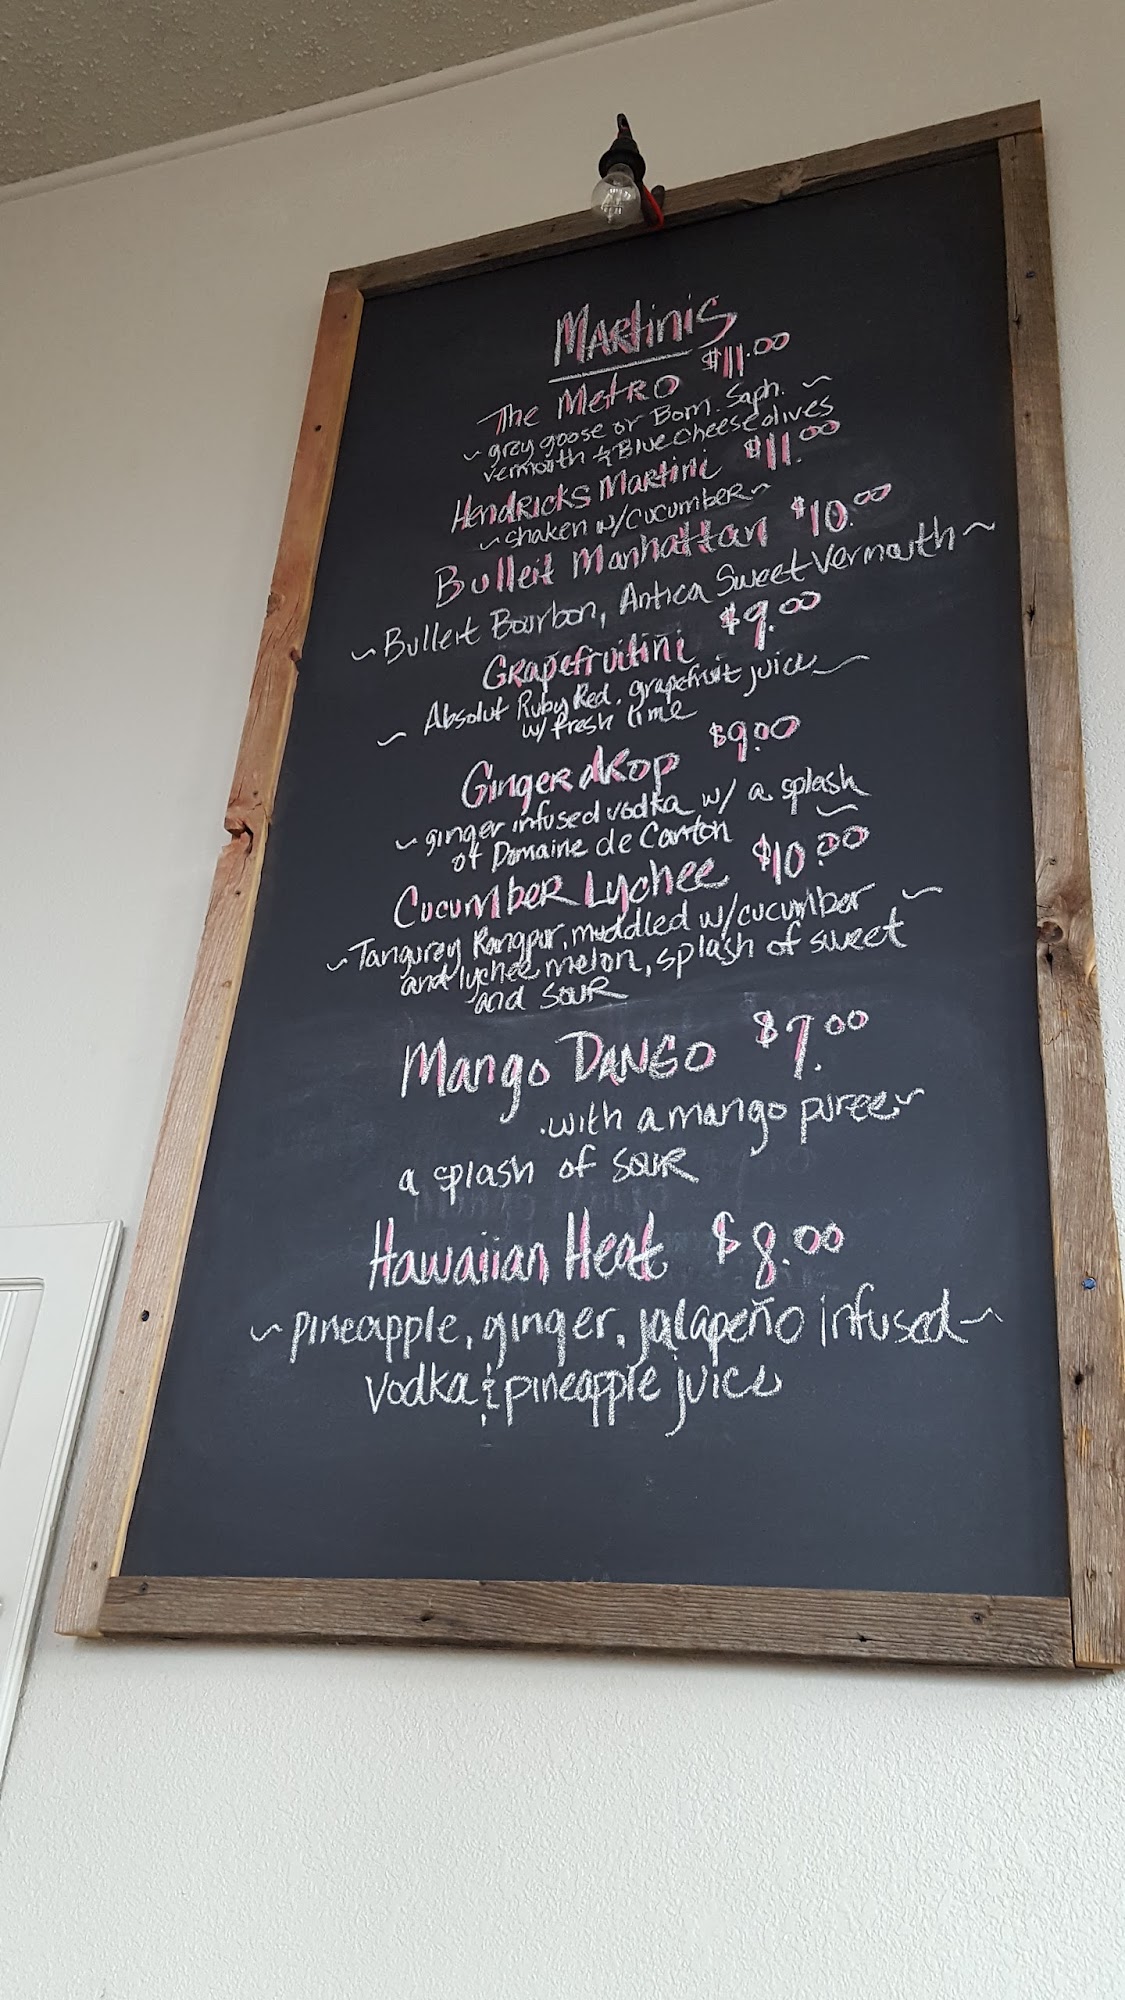 Martinis
The Metro $11.00
~ grey goose or Bom. Saph. ~
vermouth & Blue cheese olives
Hendricks Martini $11.00
~ shaken w/cucumber ~
Bulleit Manhattan $10.00
~ Bulleit Bourbon, Antica Sweet Vermouth ~
Grapefruitini $9.00
~ Absolut Ruby Red. grapefruit juice ~
w/ fresh lime
Ginger drop $9.00
~ ginger infused vodka w/ a splash
of Domaine de Canton ~
Cucumber Lychee $10.00
~ Tanqurey Rangpur, muddled w/cucumber ~
and lychee melon, splash of sweet
and sour
Mango Dango $7.00
.with a mango puree ~
a splash of sour
Hawaiian Heat $8.00
~ pineapple, ginger, jalapeño infused ~
vodka & pineapple juice